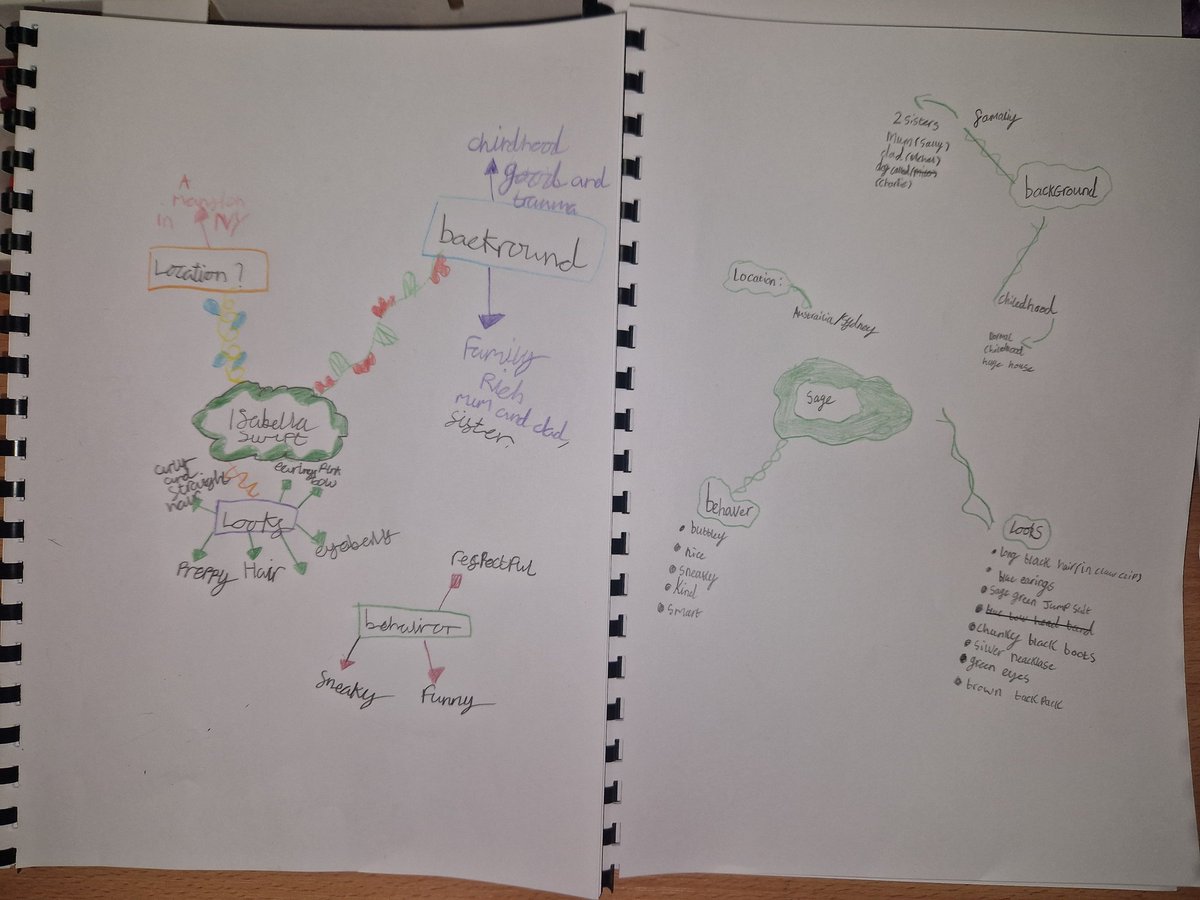 chirdhood
good and
trauma
A
Mansion
in NY
backround
Location?
Family
Rich
mum and dad,
sister.
ISabella
Swift
curly
and
straight
hair
earings
Pink
bow
Looks
eyebells
Preppy
Hair
resPectFul
behaivor
Sneaky
Funny
2 sisters
Mum (Sally)
dad
dog called
(charlie)
famaliy
backGround
Location:
Austrailia/Sydney
chiledhood
normal
childhood
huge house
Sage
behaver
bubbley
nice
sneaky
kind
smart
Looks
long black hair (in claw clips)
blue earings
sage green Jump suit
blue bow head band
chunky black boots
silver necklase
green eyes
brown back Pack